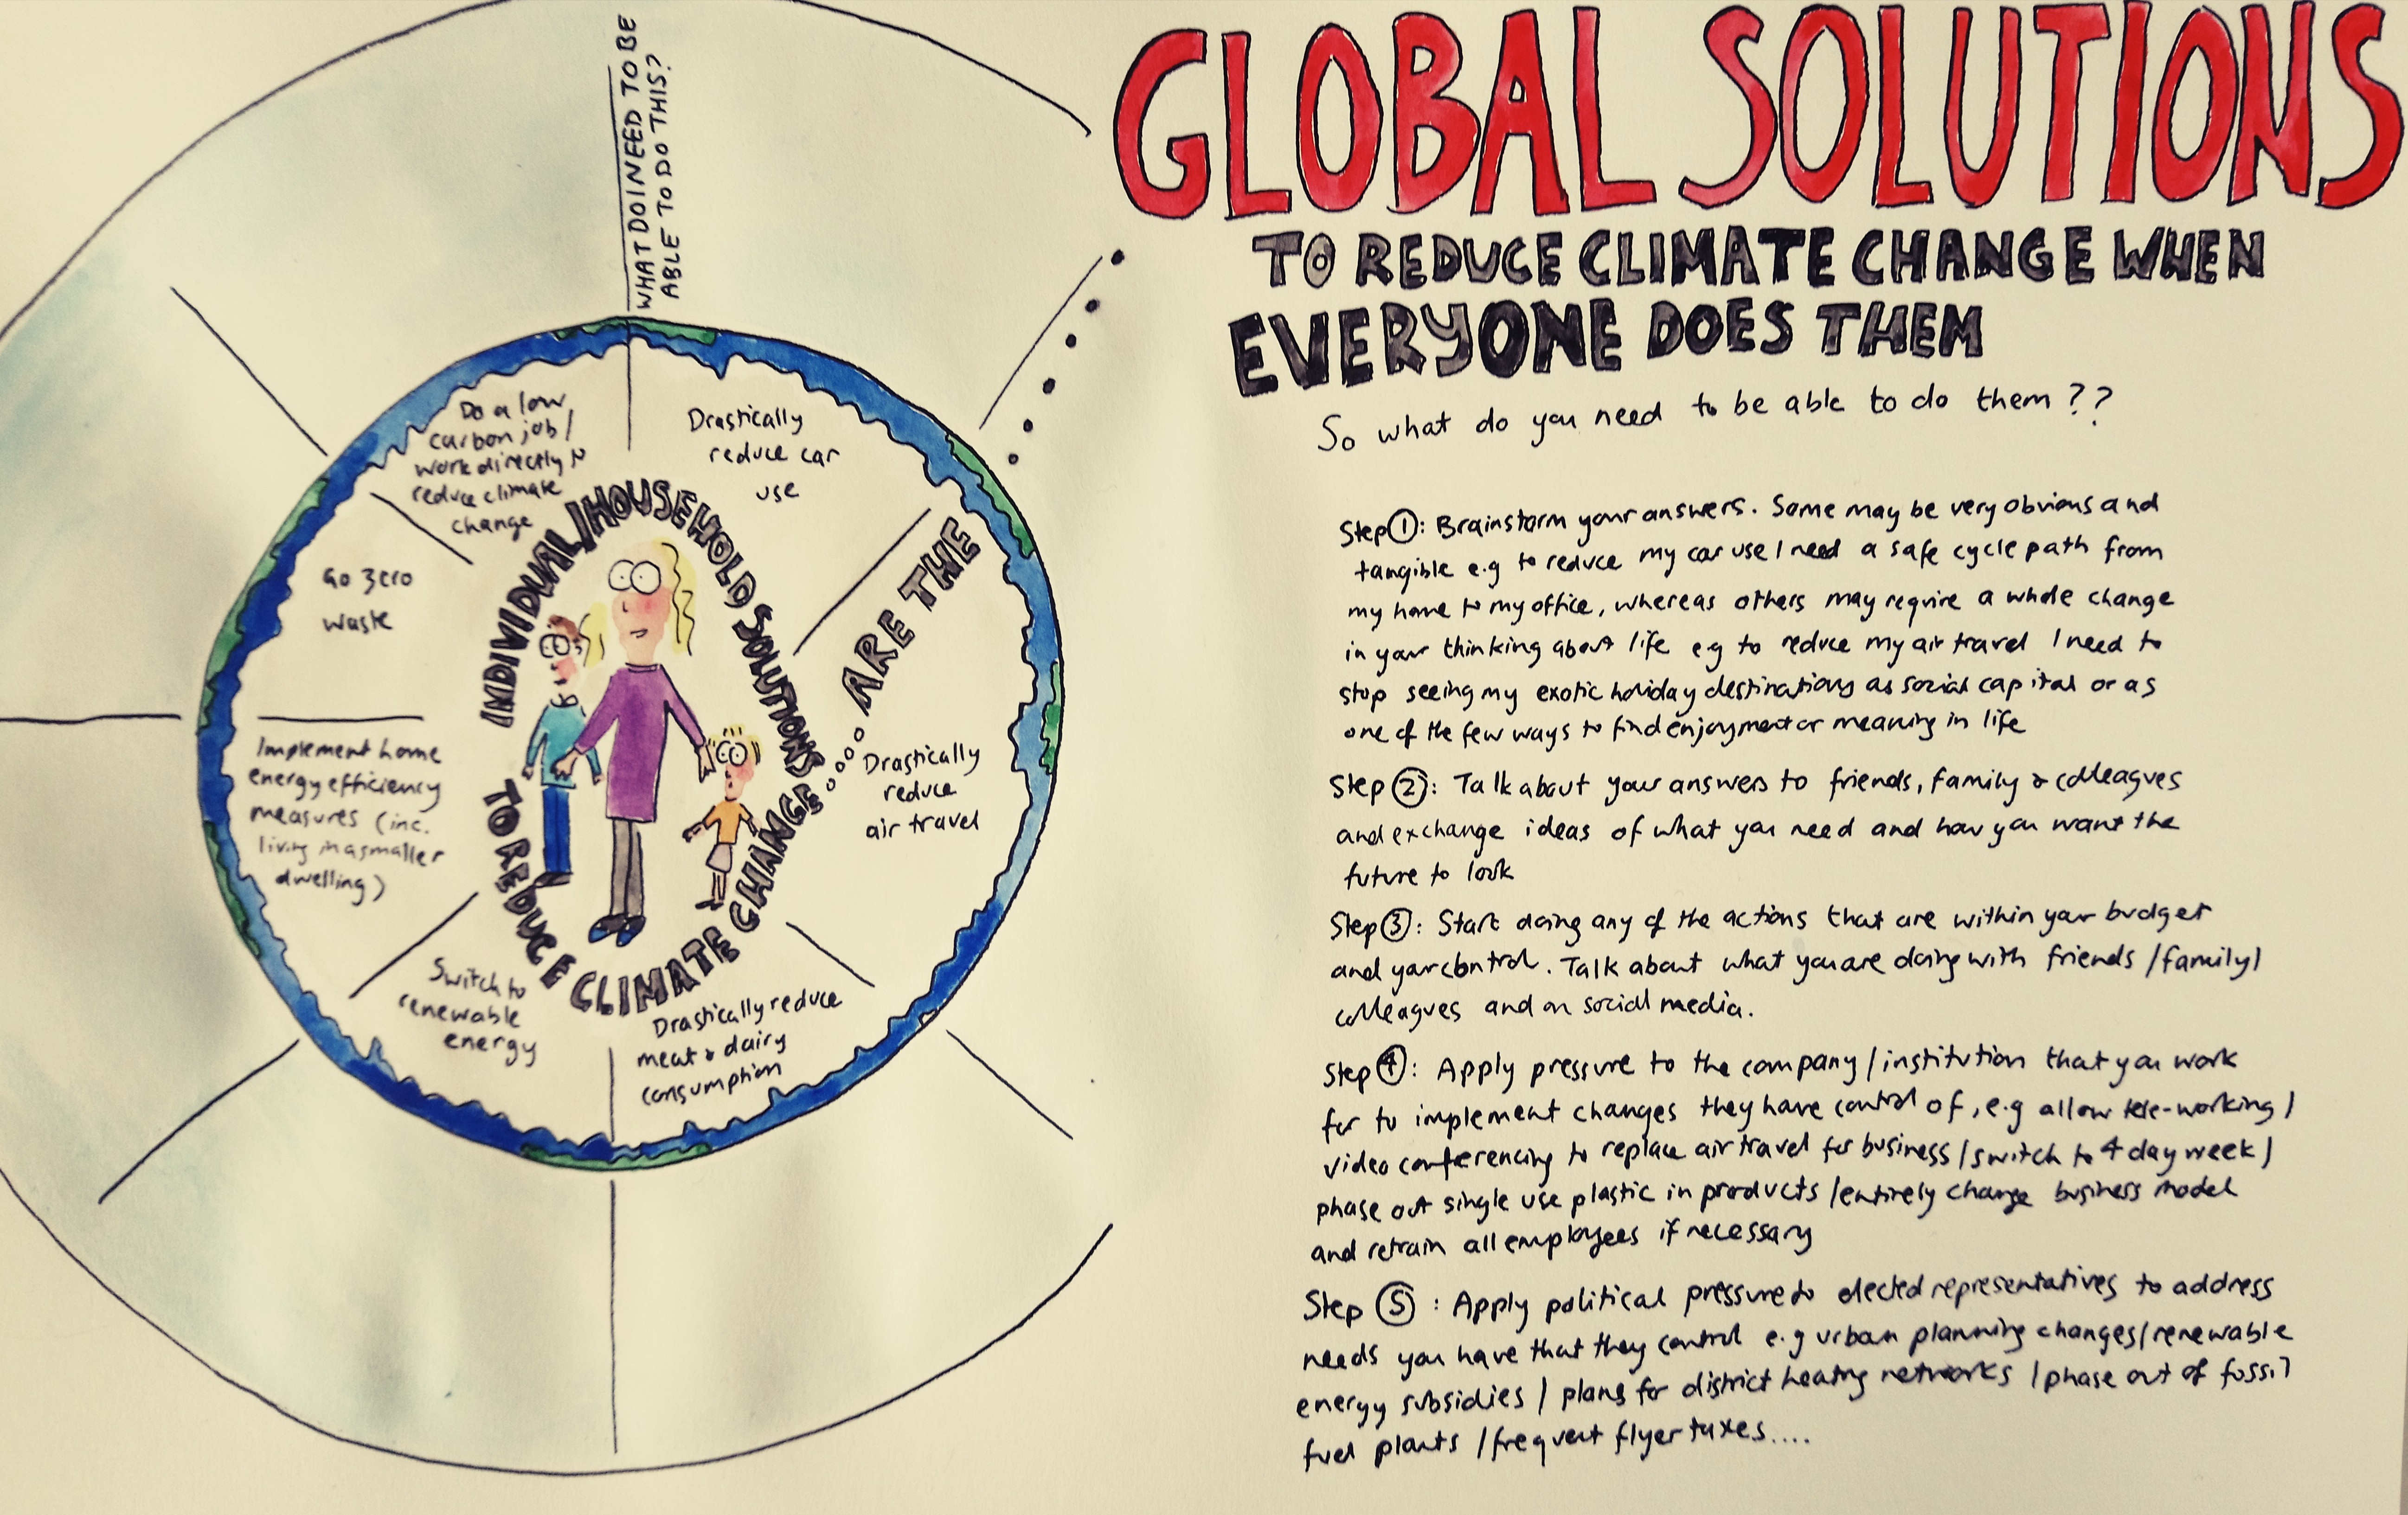 WHAT DO I NEED TO BE
ABLE TO DO THIS?
Do a low
carbon job /
work directly to
reduce climate
change
Drastically
reduce car
use
Go zero
waste
Implement home
energy efficiency
measures (inc.
living in a smaller
dwelling)
Switch to
renewable
energy
Drastically reduce
meat & dairy
consumption
Drastically
reduce
air travel
INDIVIDUAL/HOUSEHOLD SOLUTIONS
TO REDUCE CLIMATE CHANGE
ARE THE
GLOBAL SOLUTIONS
TO REDUCE CLIMATE CHANGE WHEN
EVERYONE DOES THEM
So what do you need to be able to do them??
Step 1: Brainstorm your answers. Some may be very obvious and
tangible e.g to reduce my car use I need a safe cycle path from
my home to my office, whereas others may require a whole change
in your thinking about life e.g to reduce my air travel I need to
stop seeing my exotic holiday destinations as social capital or as
one of the few ways to find enjoyment or meaning in life
Step 2: Talk about your answers to friends, family & colleagues
and exchange ideas of what you need and how you want the
future to look
Step 3: Start doing any of the actions that are within your budget
and your control. Talk about what you are doing with friends /family/
colleagues and on social media.
Step 4: Apply pressure to the company/institution that you work
for to implement changes they have control of, e.g allow tele-working/
video conferencing to replace air travel for business/switch to 4 day week/
phase out single use plastic in products /entirely change business model
and retrain all employees if necessary
Step 5: Apply political pressure to elected representatives to address
needs you have that they control e.g urban planning changes/renewable
energy subsidies / plans for district heating networks /phase out of fossil
fuel plants /frequent flyer taxes....